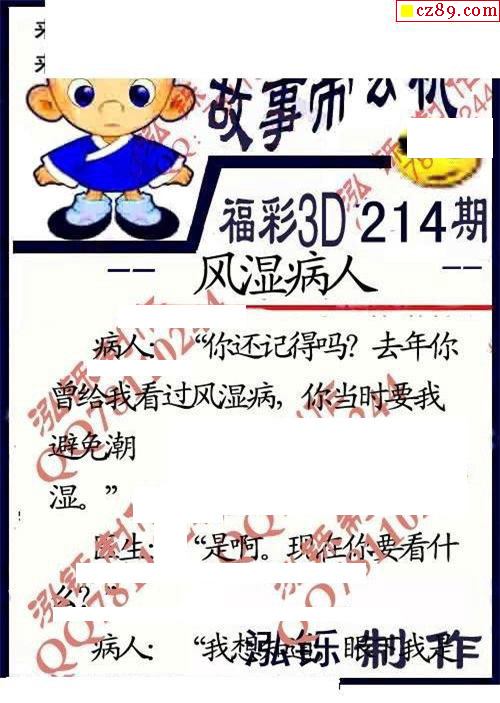 cz89.com
来
来
故事而玄机
福彩3D 214期
-- 风湿病人 --
病人: “你还记得吗? 去年你
曾给我看过风湿病, 你当时要我
避免潮
湿。”
医生: “是啊。现在你要看什
么?”
病人: “我想知道, 眼下我是
泓铄 制作